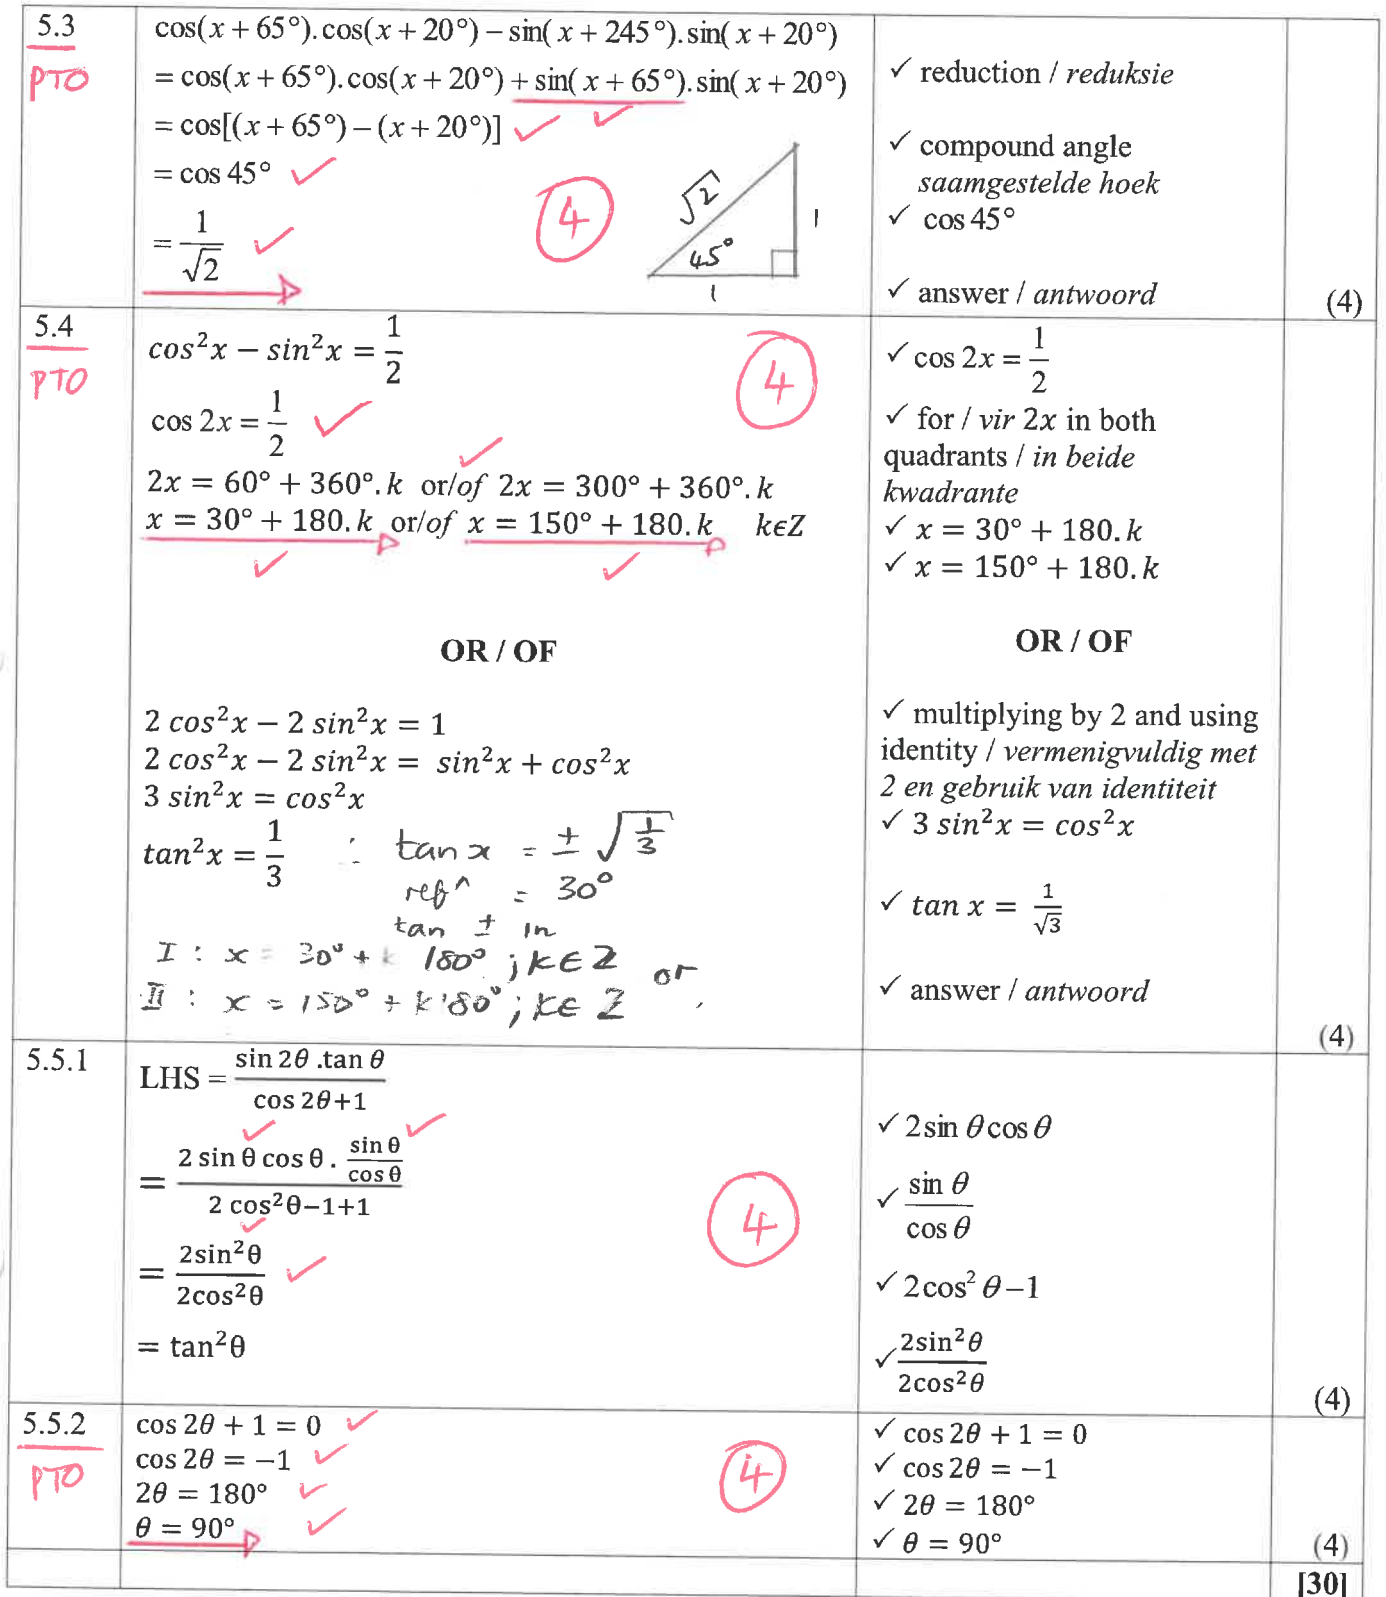 5.3
PTO
cos(x + 65°).cos(x + 20°) – sin(x + 245°).sin(x + 20°)
= cos(x + 65°).cos(x + 20°) + sin(x + 65°).sin(x + 20°)
= cos[(x + 65°) – (x + 20°)] ✓ ✓
= cos 45° ✓
= 1/√2 ✓
4
√2
45°
1
1
✓ reduction / reduksie
✓ compound angle
saamgestelde hoek
✓ cos 45°
✓ answer / antwoord
(4)
5.4
PTO
cos²x − sin²x = 1/2
cos 2x = 1/2 ✓
✓
2x = 60° + 360°. k or/of 2x = 300° + 360°. k
x = 30° + 180. k or/of x = 150° + 180. k kϵZ
✓ ✓
4
OR / OF
2 cos²x − 2 sin²x = 1
2 cos²x − 2 sin²x = sin²x + cos²x
3 sin²x = cos²x
tan²x = 1/3 ∴ tan x = ± √1/3
ref^ = 30°
tan ± in
I : x = 30° + k 180° ; k∈Z or
II : x = 150° + k180° ; k∈Z
✓ cos 2x = 1/2
✓ for / vir 2x in both
quadrants / in beide
kwadrante
✓ x = 30° + 180. k
✓ x = 150° + 180. k
OR / OF
✓ multiplying by 2 and using
identity / vermenigvuldig met
2 en gebruik van identiteit
✓ 3 sin²x = cos²x
✓ tan x = 1/√3
✓ answer / antwoord
(4)
5.5.1
LHS = sin 2θ .tan θ / cos 2θ+1
✓ ✓
= 2 sin θ cos θ . sin θ/cos θ / 2 cos²θ−1+1
✓
= 2sin²θ / 2cos²θ ✓
= tan²θ
4
✓ 2sin θ cos θ
✓ sin θ / cos θ
✓ 2cos² θ – 1
✓ 2sin²θ / 2cos²θ
(4)
5.5.2
PTO
cos 2θ + 1 = 0 ✓
cos 2θ = −1 ✓
2θ = 180° ✓
θ = 90° ✓
4
✓ cos 2θ + 1 = 0
✓ cos 2θ = −1
✓ 2θ = 180°
✓ θ = 90°
(4)
[30]